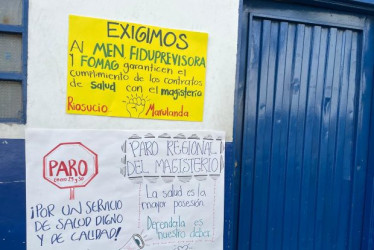 EXIGIMOS
Al MEN FIDUPREVISORA
Y FOMAG garanticen el
cumplimiento de los contratos
de salud con el magisterio
Riosucio Marulanda
PARO
¡POR UN SERVICIO
DE SALUD DIGNO
Y DE CALIDAD!
PARO REGIONAL
DEL MAGISTERIO
La salud es la
mayor posesión
Derendala es
nuestro deber